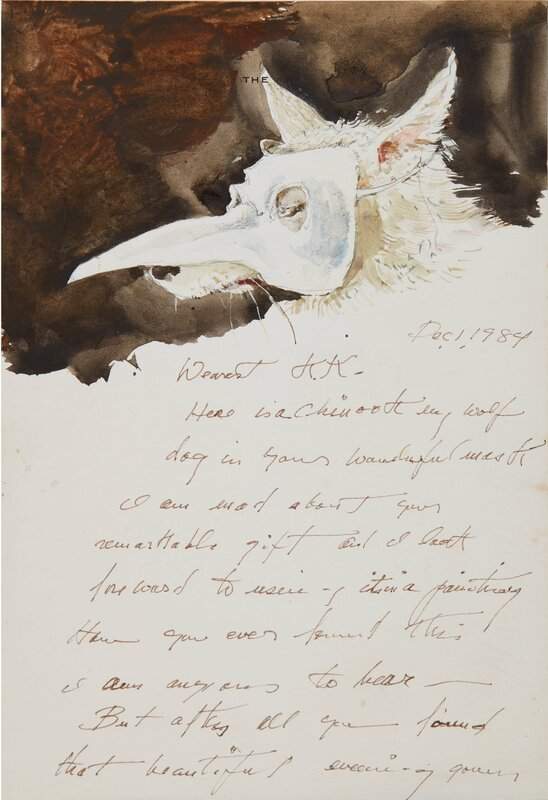 THE
Dec 1, 1984
Dearest K.K.
Here is a Chinook my wolf
dog in your wonderful mask
I am mad about your
remarkable gift and I look
forward to useing it in a painting
How you ever found this
I am anxious to hear —
But after all you found
that beautiful eveneing gown